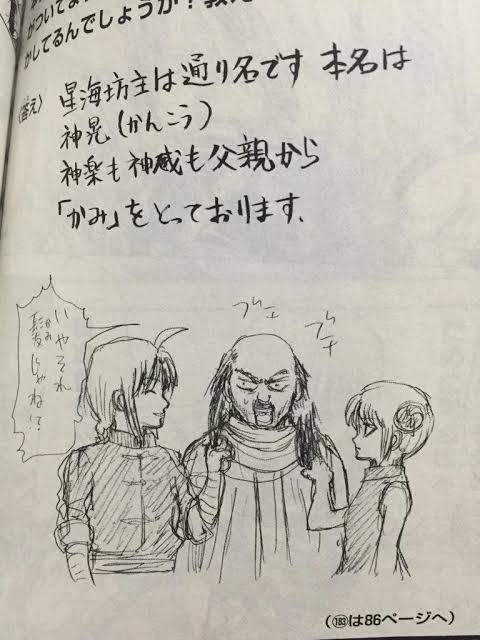 がついてま
かしてるんでしょうか？教え
(答え) 星海坊主は通り名です 本名は
神晃(かんこう)
神楽も神威も父親から
「かみ」をとっております.
いやそれ
髪じゃね!?
ブチ
ブチ
(183は86ページへ)